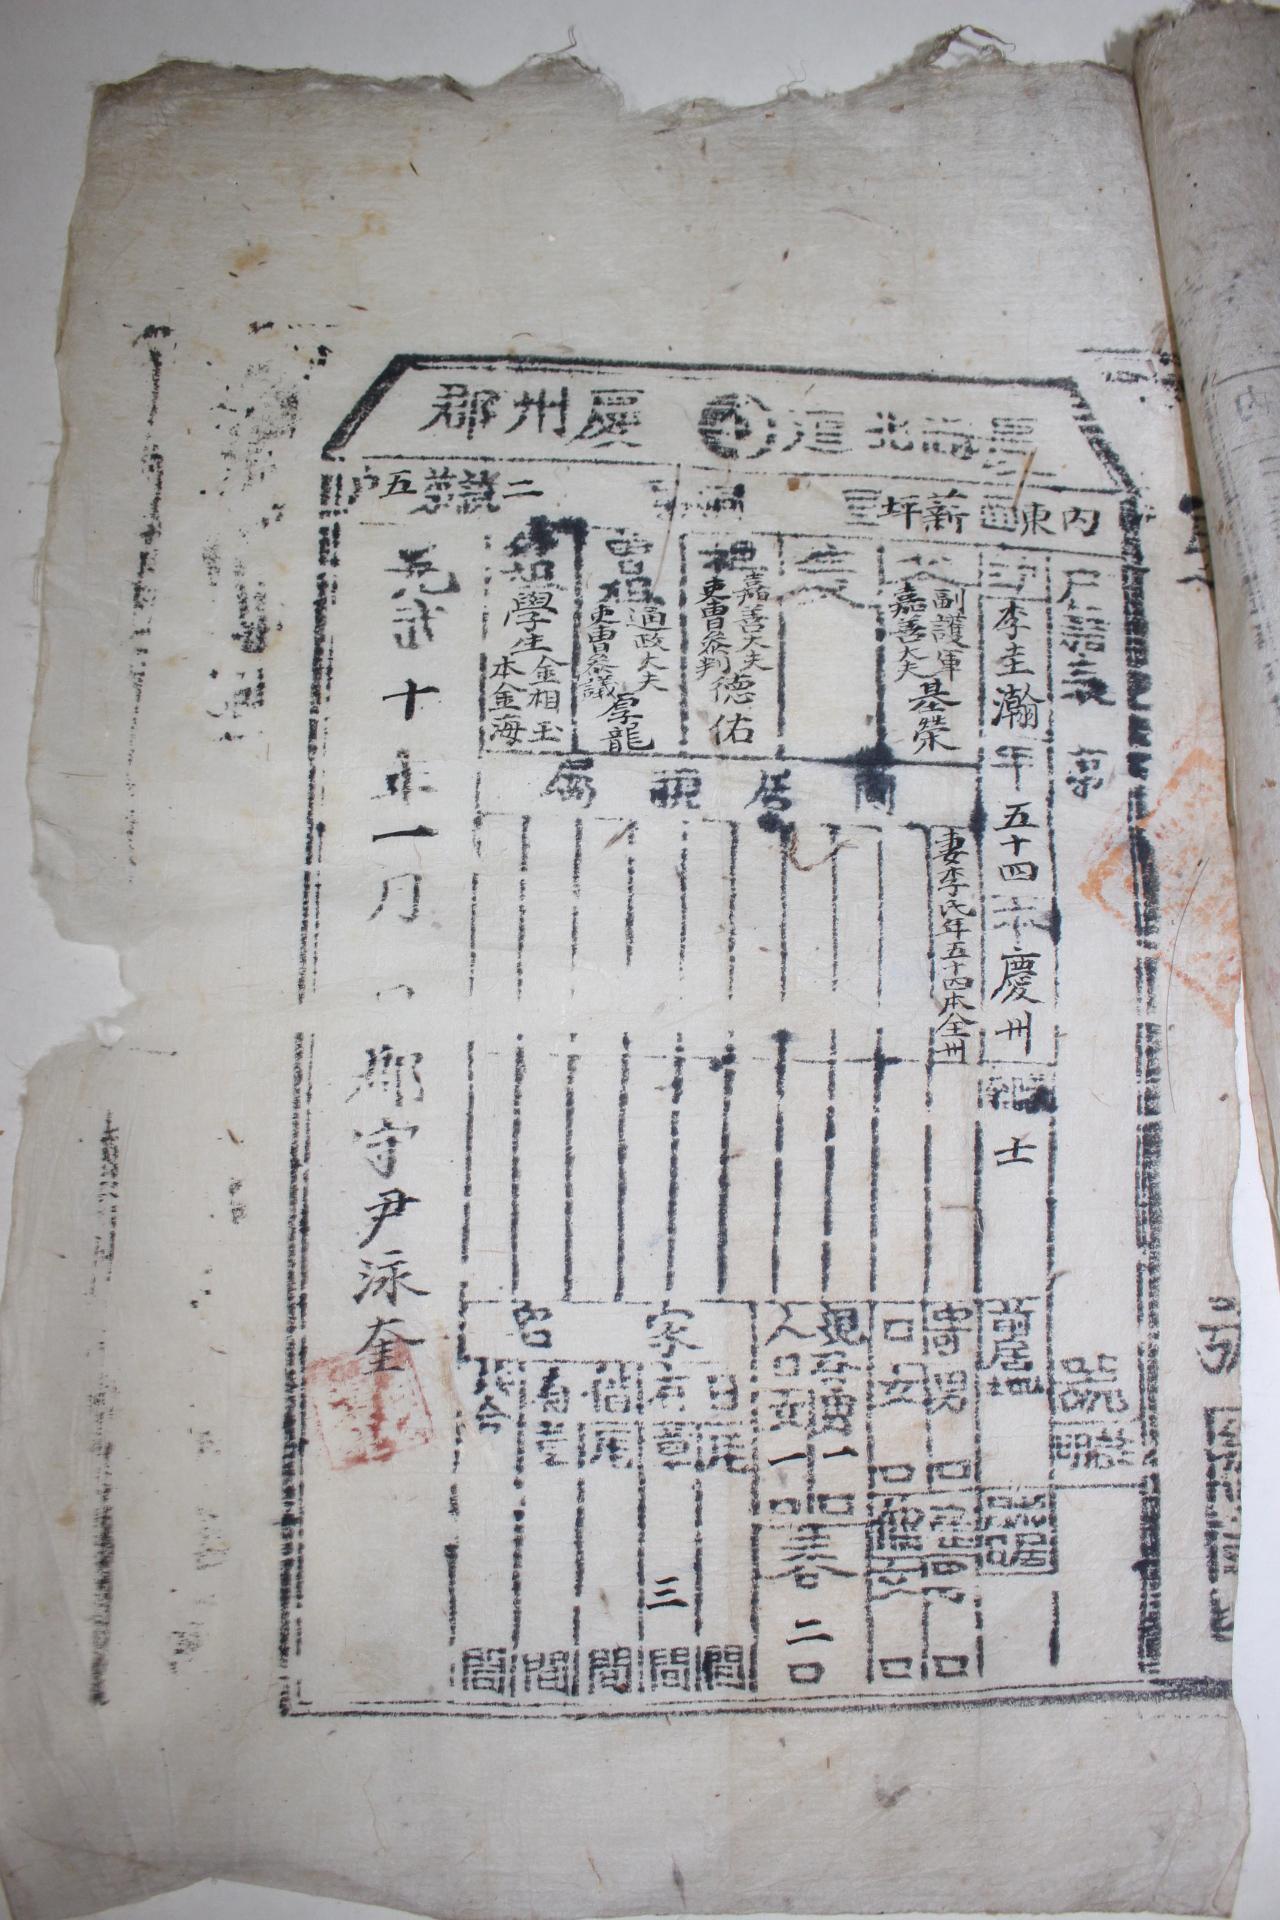 慶尙北道 慶州郡
內東面 薪坪里 洞 二統五戶
戶籍表
職業
李圭瀚 年五十四 本慶州 士
前居地 移居
父 副護軍 嘉善大夫 基榮
生父
祖 嘉善大夫 吏曹參判 德佑
曾祖 通政大夫 吏曹參議 厚龍
外祖 學生 金相玉 本金海
同居親屬
妻李氏年五十四本全州
寄口 男 口 女 口
雇傭 男 口 女 口
現存人口 男一口 女一口 共二口
家宅
三間
光武十年一月 日
郡守尹泳奎